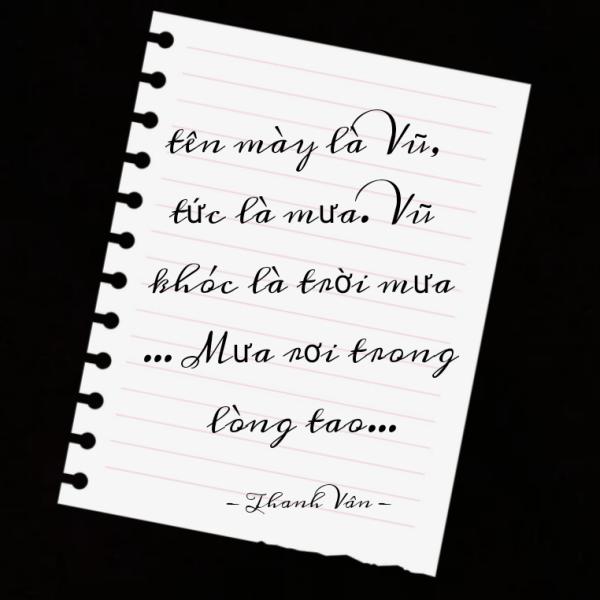 tên mày là Vũ,
tức là mưa. Vũ
khóc là trời mưa
... Mưa rơi trong
lòng tao...
– Thanh Vân –